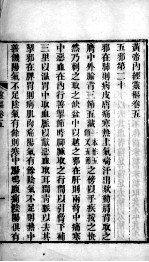 黃帝內經靈樞卷五
五邪第二十
邪在肺則病皮膚痛寒熱上氣喘汗出欬動肩背取之
膺中外腧背三節五藏之傍以手疾按之快
然乃刺之取之缺盆中以越之邪在肝則兩脅中痛寒
中惡血在內行善掣節時腳腫取之行間以引脅下補
三里以溫胃中取血脈以散惡血取耳間青脈以去其
掣邪在脾胃則病肌肉痛陽氣有餘陰氣不足則熱中
善飢陽氣不足陰氣有餘則寒中腸鳴腹痛陰陽俱有